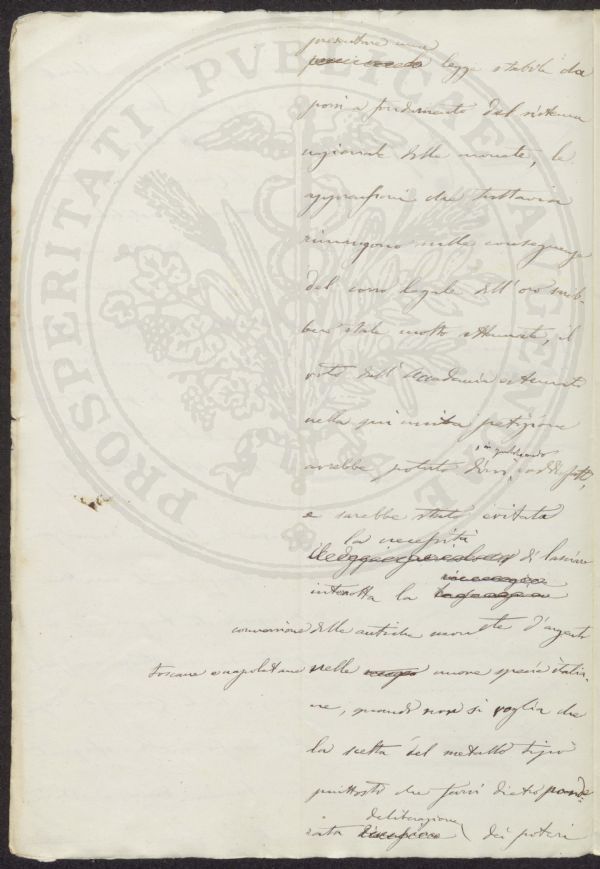 PROSPERITATI PVBLICAE AVGENDAE
presentare una
legge stabile da
porsi a fondamento del sistema
razionale delle monete, le
apprensioni che tuttavia
rimangono sulle conseguenze
del corso legale dell'oro sareb-
bero state molto attenuate, il
voto dell'Accademia esternato
nella qui unita petizione
avrebbe potuto dirsi soddisfatto,
e sarebbe stata evitata
la necessità
di lasciare
interrotta la
conversione delle antiche monete d'argento
toscane e napoletane nelle nuove specie italia-
ne, quando non si voglia che
la scelta del metallo tipo
piuttosto che farsi dietro ponde-
deliberazione
rata dei poteri